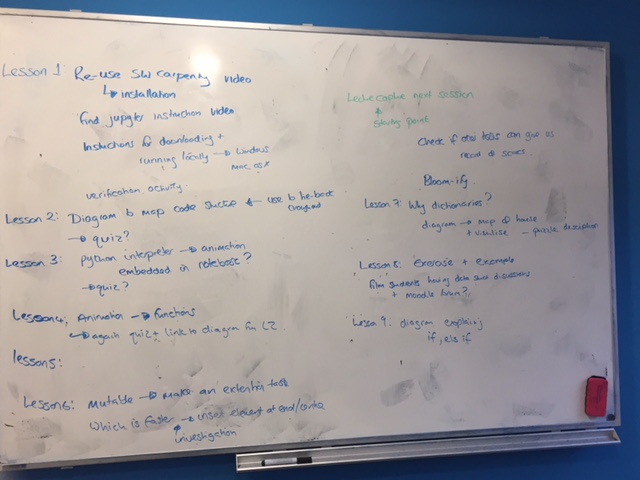 Lesson 1 Re-use SW carpentry video
↳ installation
find jupyter instruction video
Instructions for downloading +
running locally → Windows
mac osx
verification activity
Lesson 2: Diagram to map code ← use
→ quiz?
Lesson 3: python interpreter → animation
embedded in notebook?
→ quiz?
Lesson 4: Animation → functions
→ again quiz + link to diagram for L2
lesson 5:
Lesson 6: mutable → make an task
Which is faster → insert element at end/centre
investigation
Lecture capture next session
starting point
Check if can give us
record of scores
Bloom-ify
Lesson 7: Why dictionaries?
diagram → map of house
+ visualise – puzzle description
Lesson 8: Exercise + example
Film students having data discussions
+ moodle forum?
Lesson 9. diagram explaining
if, else if